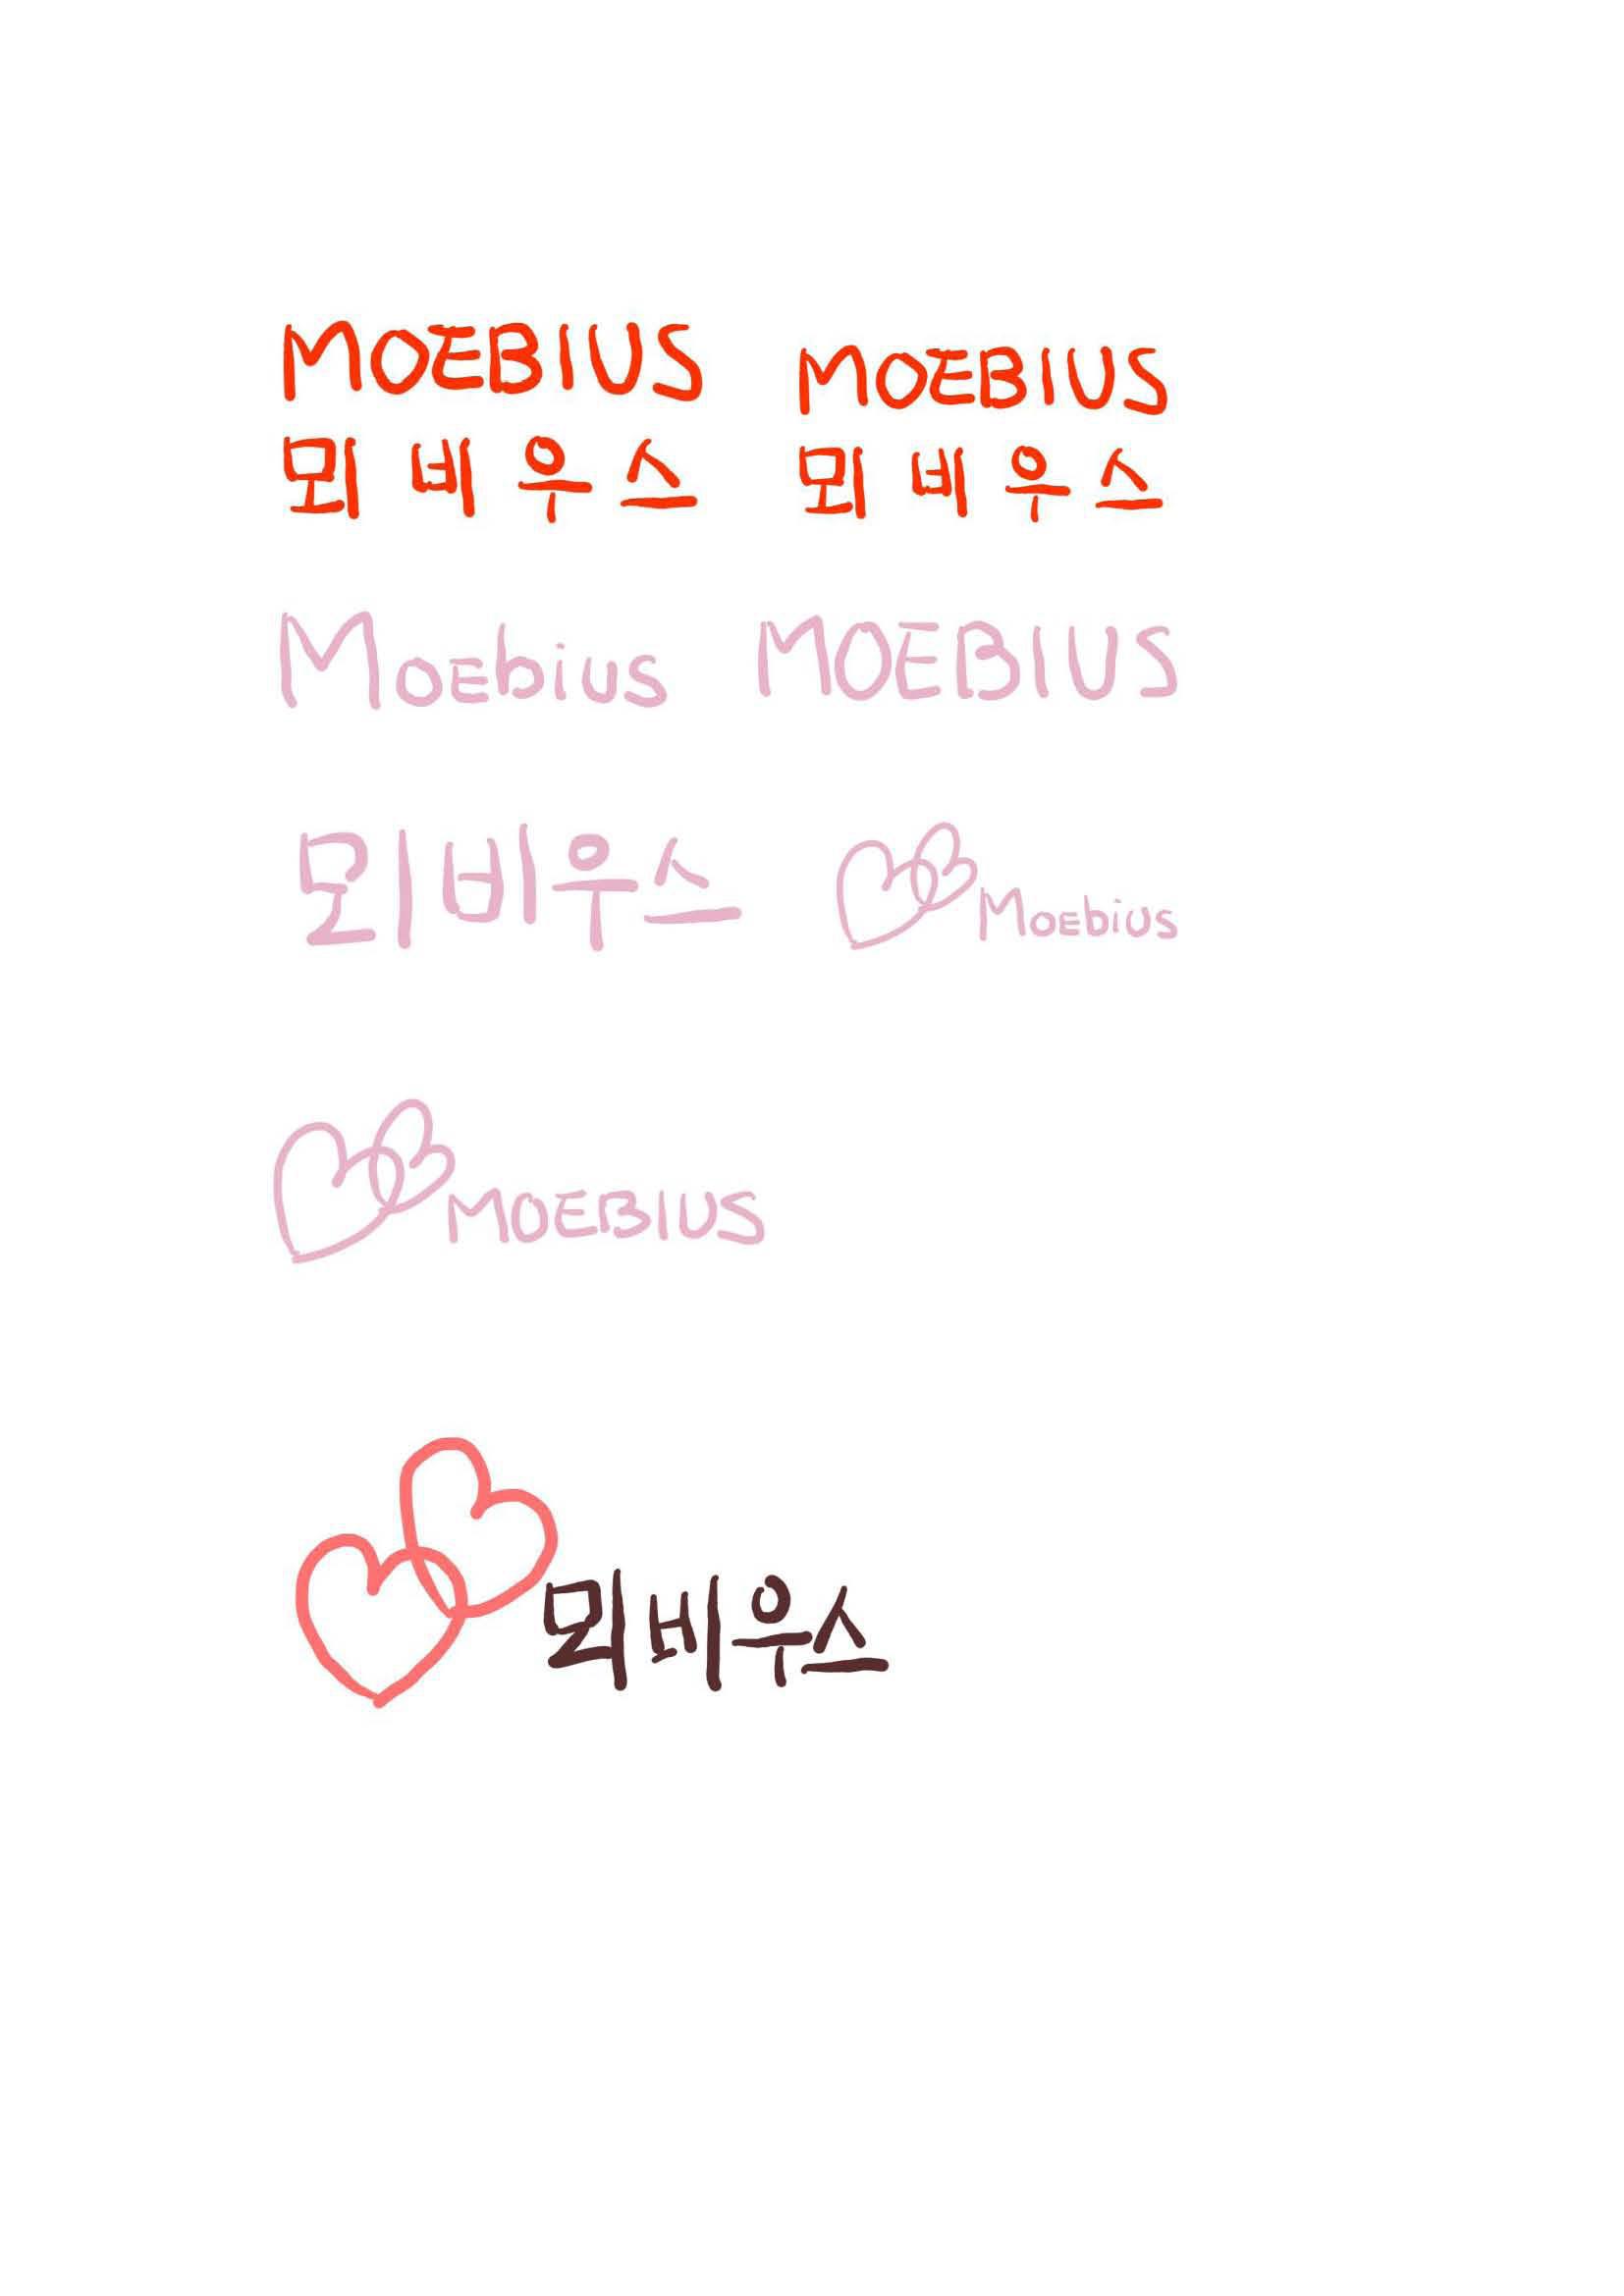 MOEBIUS MOEBIUS
뫼비우스 뫼비우스
Moebius MOEBIUS
뫼비우스 Moebius
MOEBIUS
뫼비우스